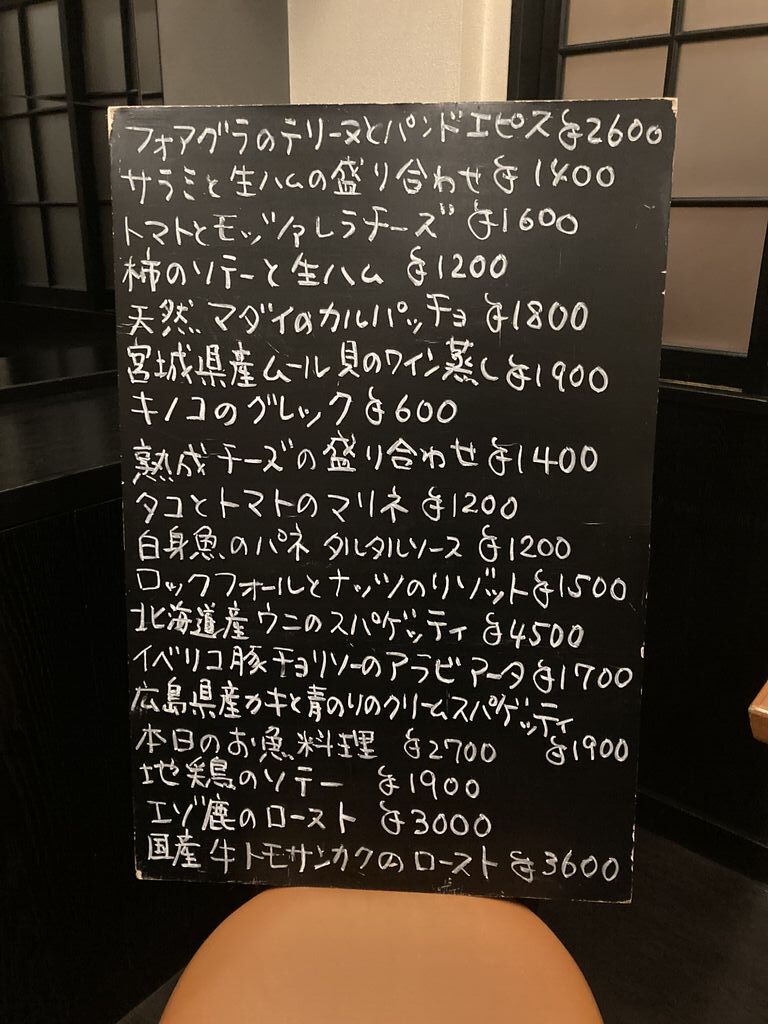 フォアグラのテリーヌとパンドエピス ¥2600
サラミと生ハムの盛り合わせ ¥1400
トマトとモッツァレラチーズ ¥1600
柿のソテーと生ハム ¥1200
天然マダイのカルパッチョ ¥1800
宮城県産ムール貝のワイン蒸し ¥1900
キノコのグレック ¥600
熟成チーズの盛り合わせ ¥1400
タコとトマトのマリネ ¥1200
白身魚のパネ タルタルソース ¥1200
ロックフォールとナッツのリゾット ¥1500
北海道産ウニのスパゲッティ ¥4500
イベリコ豚チョリソーのアラビアータ ¥1700
広島県産カキと青のりのクリームスパゲッティ ¥1900
本日のお魚料理 ¥2700
地鶏のソテー ¥1900
エゾ鹿のロースト ¥3000
国産牛トモサンカクのロースト ¥3600